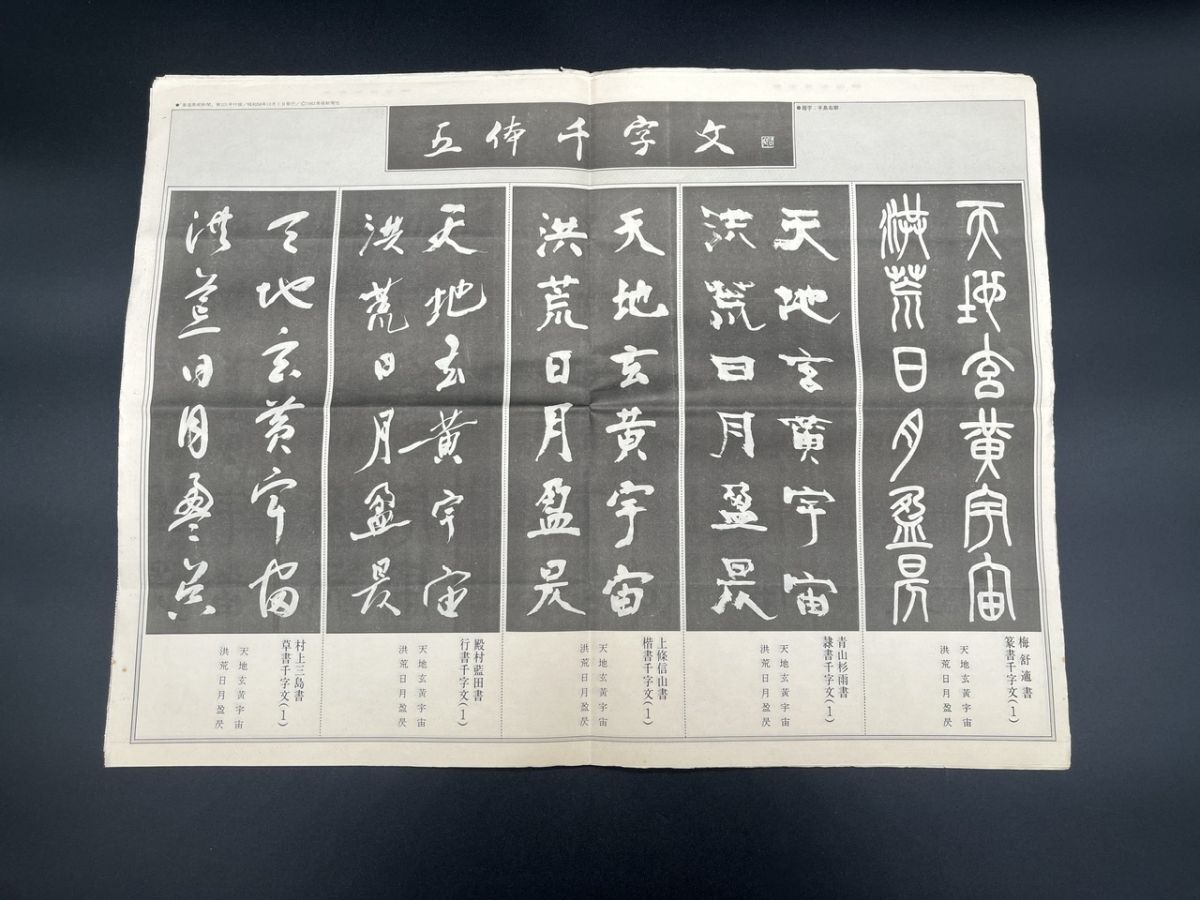 五体千字文
●題字:手島右卿
天地玄黄宇宙
洪荒日月盈昃
梅舒適書
篆書千字文(1)
天地玄黃宇宙
洪荒日月盈昃
天地玄黄宇宙
洪荒日月盈昃
青山杉雨書
隷書千字文(1)
天地玄黃宇宙
洪荒日月盈昃
天地玄黄宇宙
洪荒日月盈昃
上條信山書
楷書千字文(1)
天地玄黃宇宙
洪荒日月盈昃
天地玄黄宇宙
洪荒日月盈昃
殿村藍田書
行書千字文(1)
天地玄黃宇宙
洪荒日月盈昃
天地玄黄宇宙
洪荒日月盈昃
村上三島書
草書千字文(1)
天地玄黃宇宙
洪荒日月盈昃